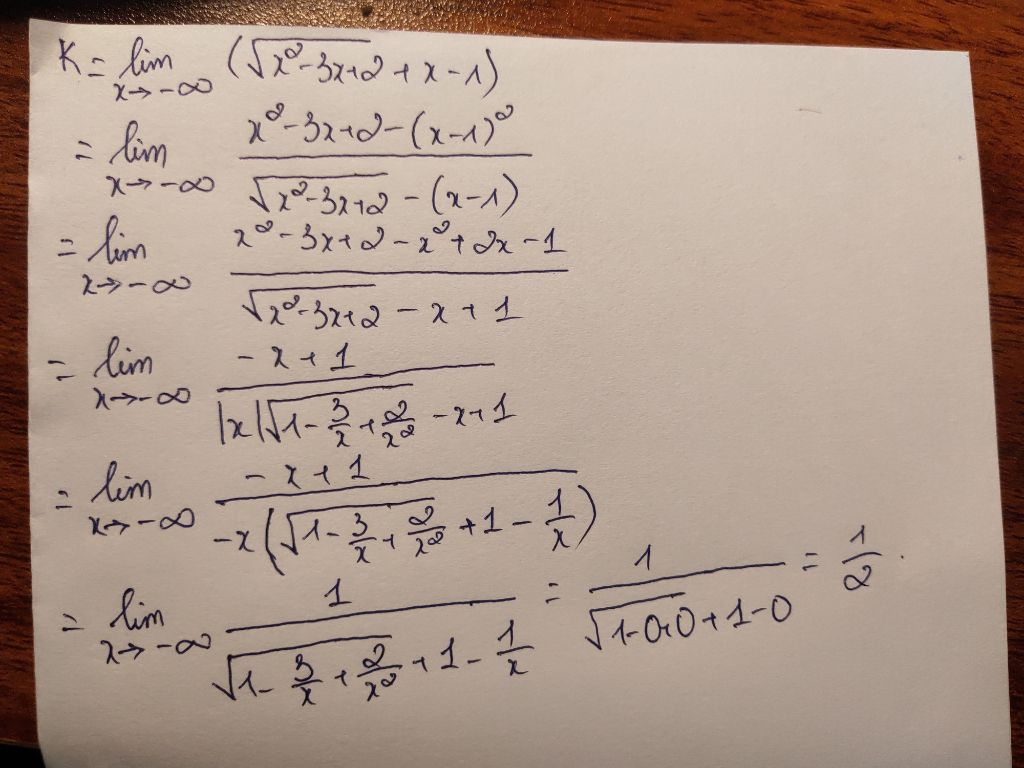 K = lim_{x→-∞} (√(x²-3x+2) + x - 1)
= lim_{x→-∞} (x²-3x+2-(x-1)²)/(√(x²-3x+2) - (x-1))
= lim_{x→-∞} (x²-3x+2-x²+2x-1)/(√(x²-3x+2) - x + 1)
= lim_{x→-∞} (-x+1)/(|x|√(1-3/x+2/x²) - x+1)
= lim_{x→-∞} (-x+1)/(-x(√(1-3/x+2/x²) + 1 - 1/x))
= lim_{x→-∞} 1/(√(1-3/x+2/x²) + 1 - 1/x) = 1/(√(1-0+0) + 1-0) = 1/2.